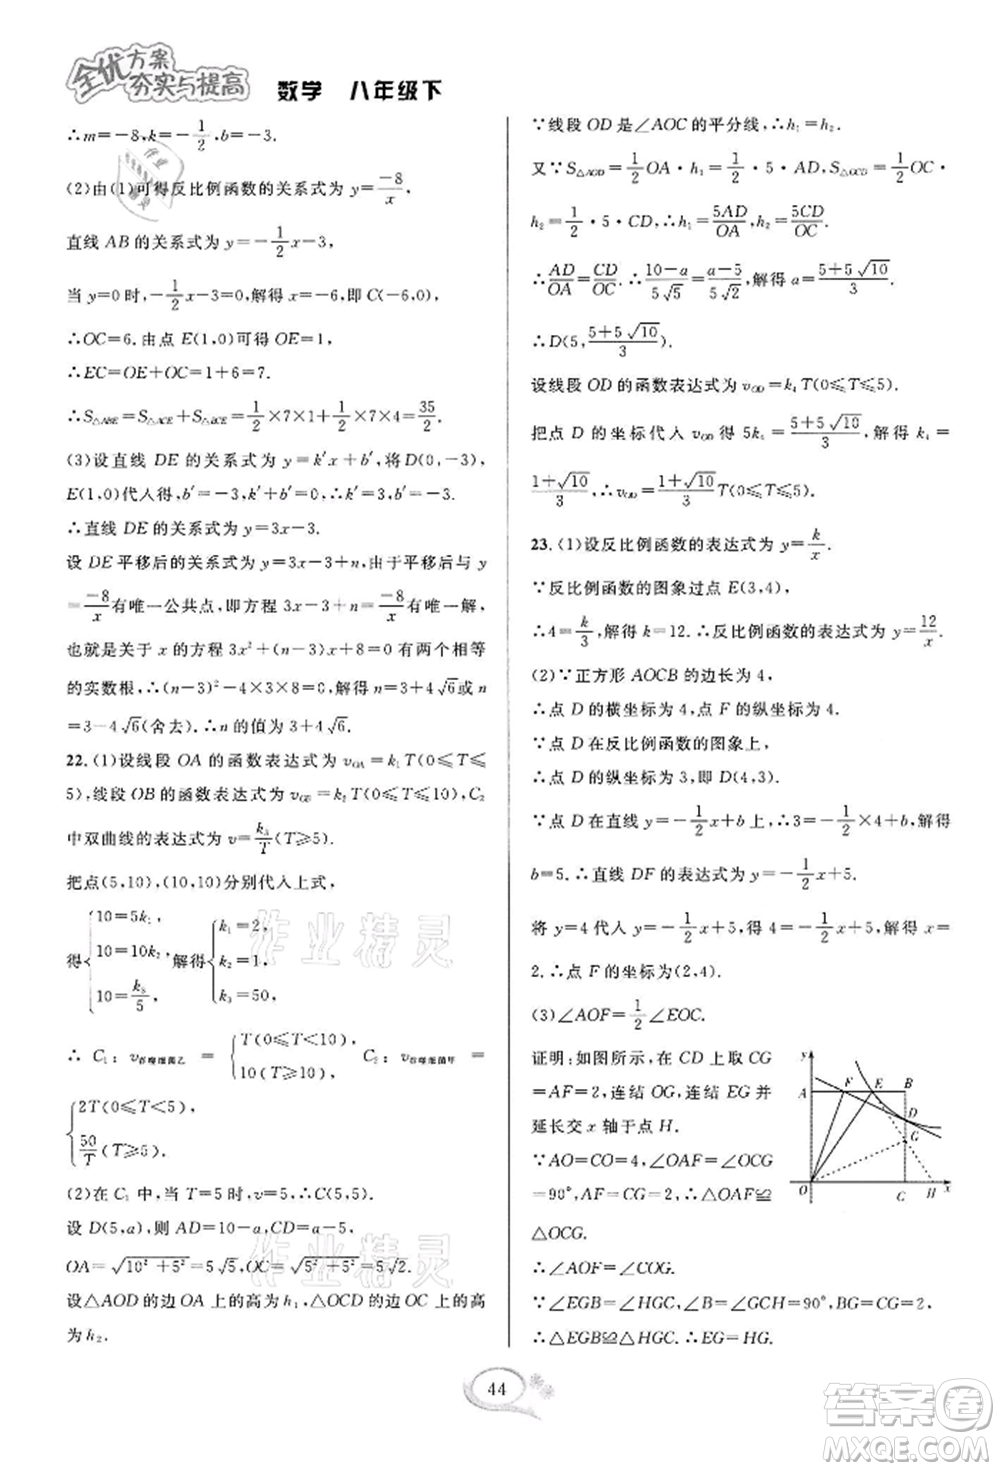 全优方案
夯实与提高 数学 八年级下
∴m=-8,k=-1/2,b=-3.
(2)由(1)可得反比例函数的关系式为 y=-8/x,
直线 AB 的关系式为 y=-1/2x-3,
当 y=0 时,-1/2x-3=0,解得 x=-6,即 C(-6,0).
∴OC=6.由点 E(1,0)可得 OE=1.
∴EC=OE+OC=1+6=7.
∴S△ABE=S△ACE+S△BCE=1/2×7×1+1/2×7×4=35/2.
(3)设直线 DE 的关系式为 y=k′x+b′,将D(0,-3),
E(1,0)代入得,b′=-3,k′=3.
∴直线 DE 的关系式为 y=3x-3.
设 DE平移后的关系式为 y=3x-3+n,与 y=
-8/x有唯一公共点,即方程 3x-3+n=-8/x有唯一解,
也就是关于 x 的方程 3x²+(n-3)x+8=0有两个相等
的实数根,∴(n-3)²-4×3×8=0,解得 n=3+4√6或 n
=3-4√6(舍去).∴n 的值为 3+4√6.
22.(1)设线段 OA 的函数表达式为 vOA=k₁T(0⩽T⩽
5),线段 OB 的函数表达式为 vOB=k₂T(0⩽T⩽10),C₂
中双曲线的表达式为 v=k₃/T(T⩾5).
把点(5,10),(10,10)分别代入上式,
得{10=5k₁, 10=10k₂, 10=k₃/5, 解得{k₁=2, k₂=1, k₃=50,
∴ C₁: v首噬细菌乙 = {T(0⩽T<10), 10(T⩾10). C₂: v首噬细菌甲 =
{2T(0⩽T<5), 50/T(T⩾5).
(2)在 C₁ 中,当 T=5时,v=5,∴C(5,5).
设 D(5,a),则 AD=10-a,CD=a-5,
OA=√10²+5²=5√5,OC=√5²+5²=5√2.
设△AOD的边OA上的高为h₁,△OCD的边OC上的高
为 h₂.
∵线段 OD 是∠AOC的平分线,∴h₁=h₂.
又∵S△AOD=1/2OA·h₁=1/2·5·AD,S△OCD=1/2OC·
h₂=1/2·5·CD,∴h₁=5AD/OA,h₂=5CD/OC.
∴AD/OA=CD/OC.∴10-a/5√5=a-5/5√2,解得 a=5+5√10/3.
∴D(5,5+5√10/3).
设线段 OD 的函数表达式为 vOD=k₄T(0⩽T⩽5).
把点 D 的坐标代入 vOD得 5k₄=5+5√10/3,解得 k₄=
1+√10/3,∴vOD=1+√10/3T(0⩽T⩽5).
23.(1)设反比例函数的表达式为 y=k/x.
∵反比例函数的图象过点 E(3,4),
∴4=k/3,解得 k=12.∴反比例函数的表达式为 y=12/x.
(2)∵正方形 AOCB 的边长为 4,
∴点 D的横坐标为 4,点 F的纵坐标为 4.
∵点 D 在反比例函数的图象上,
∴点 D 的纵坐标为 3,即 D(4,3).
∵点 D 在直线 y=-1/2x+b 上,∴3=-1/2×4+b,解得
b=5.∴直线 DF 的表达式为 y=-1/2x+5.
将 y=4代入 y=-1/2x+5,得 4=-1/2x+5,解得 x=
2.∴点 F 的坐标为(2,4).
(3)∠AOF=1/2∠EOC.
证明:如图所示,在 CD上取 CG
=AF=2,连结 OG,连结 EG 并
延长交 x 轴于点 H.
∵AO=CO=4,∠OAF=∠OCG
=90°,AF=CG=2,∴△OAF≌
△OCG.
∴∠AOF=∠COG.
∵∠EGB=∠HGC,∠B=∠GCH=90°,BG=CG=2,
∴△EGB≌△HGC.∴EG=HG.
y
A F E B
D
G
O C H x
作业精灵
作业精灵
44
答案圈
MXQE.COM